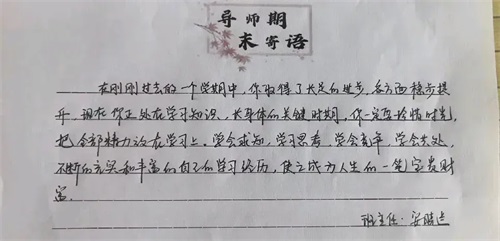 导师期
末寄语
在刚刚过去的一个学期中，你取得了长足的进步，各方面稳步提
升，现在你正处在学习知识、长身体的关键时期，你一定要珍惜时光，
把全部精力放在学习上。学会求知，学习思考，学会青年，学会共处，
不断的充实和丰富的自己的学习经历，使之成为人生的一笔宝贵财
富。
班主任：安晓